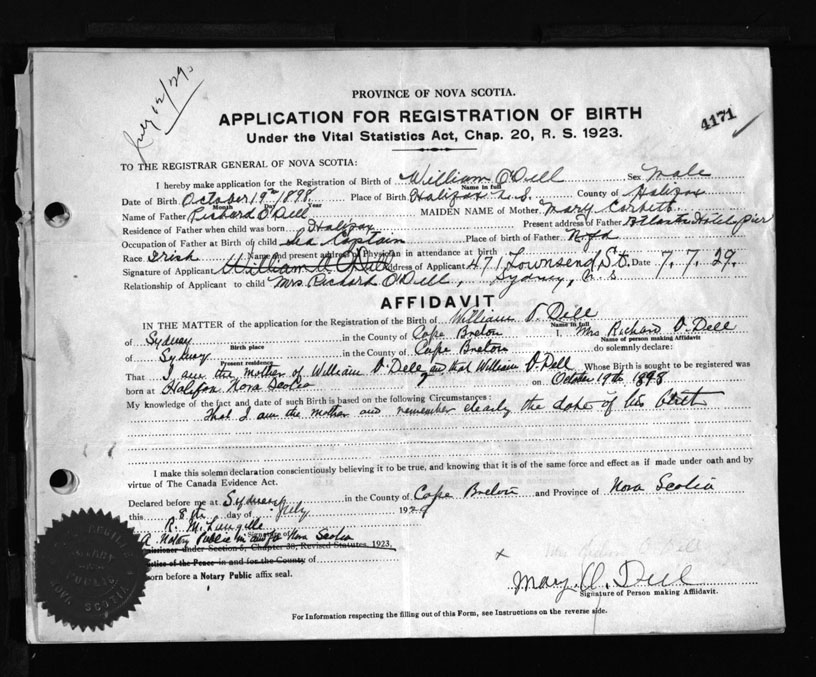 July 12/29
PROVINCE OF NOVA SCOTIA.
APPLICATION FOR REGISTRATION OF BIRTH
4171
Under the Vital Statistics Act, Chap. 20, R. S. 1923.
TO THE REGISTRAR GENERAL OF NOVA SCOTIA:
I hereby make application for the Registration of Birth of William O'Dell Sex Male
Name in full
Date of Birth October 19th 1898 Place of Birth Halifax N.S. County of Halifax
Month Day Year
Name of Father Richard O'Dell MAIDEN NAME of Mother Mary Corbett
Residence of Father when child was born Halifax Present address of Father
Occupation of Father at Birth of child Sea Captain Place of birth of Father Nfld
Race Irish Name and present address of Physician in attendance at birth
Signature of Applicant William O'Dell Address of Applicant 471 Townsend St. Date 7.7.29.
Relationship of Applicant to child Mrs. Richard O'Dell, Sydney, N. S.
AFFIDAVIT
IN THE MATTER of the application for the Registration of the Birth of William O'Dell
Name in full
of Sydney in the County of Cape Breton I, Mrs Richard O'Dell
Birth place Name of person making Affidavit
of Sydney in the County of Cape Breton do solemnly declare:
Present residence
That I am the mother of William O'Dell and that William O'Dell Whose Birth is sought to be registered was
born at Halifax Nova Scotia on October 19th 1898
My knowledge of the fact and date of such Birth is based on the following Circumstances:
That I am the mother and remember clearly the date of his birth
I make this solemn declaration conscientiously believing it to be true, and knowing that it is of the same force and effect as if made under oath and by
virtue of The Canada Evidence Act.
Declared before me at Sydney in the County of Cape Breton and Province of Nova Scotia
this 8th day of July 1929
R. M. Langille
Signature of
A Notary Public in and for Nova Scotia
Commissioner under Section 6, Chapter 38, Revised Statutes, 1923,
Justice of the Peace in and for the County of
Sworn before a Notary Public affix seal.
x
Mary O'Dell
Signature of Person making Affidavit.
For Information respecting the filling out of this Form, see Instructions on the reverse side.
NOTARY
PUBLIC
NOVA SCOTIA